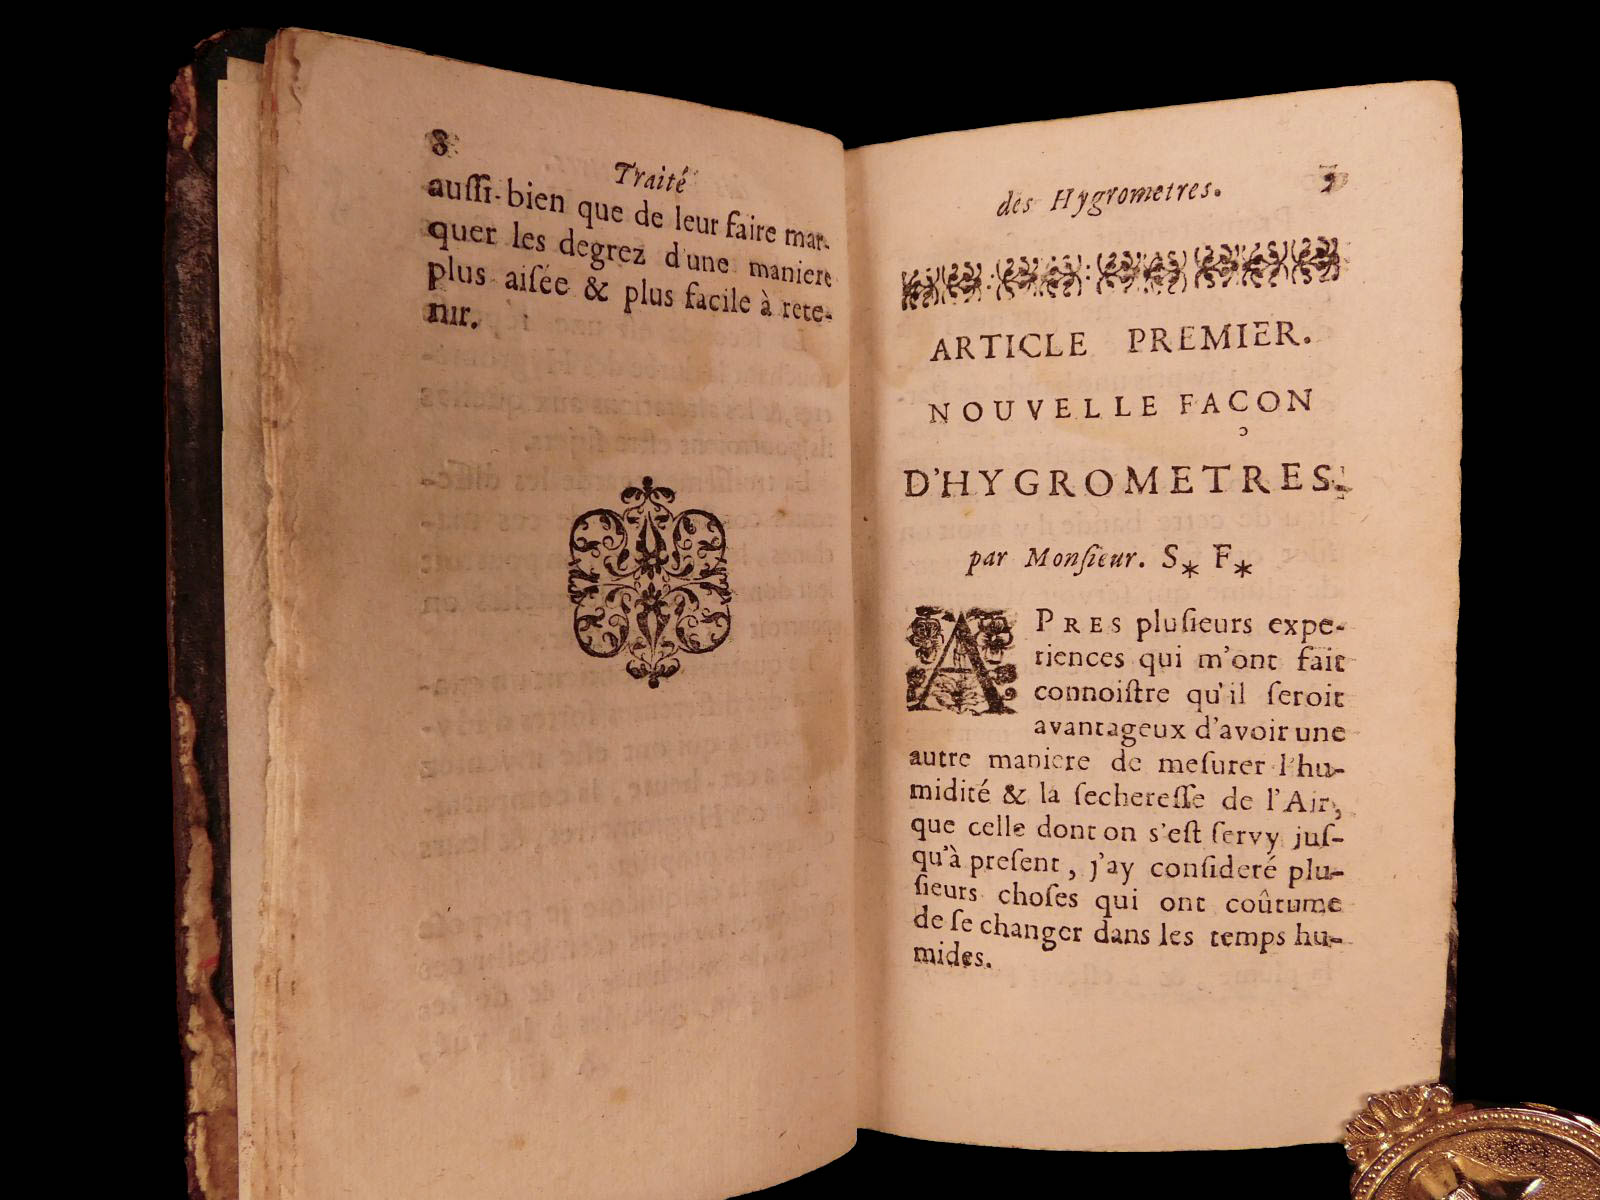 8
Traité
auſſi-bien que de leur faire mar-
quer les degrez d'une maniere
plus aiſée & plus facile à rete-
nir.
des Hygrometres.
ARTICLE PREMIER.
NOUVELLE FAÇON
D'HYGROMETRES.
par Monſieur. S* F*
APRES pluſieurs expe-
riences qui m'ont fait
connoiſtre qu'il ſeroit
avantageux d'avoir une
autre maniere de meſurer l'hu-
midité & la ſechereſſe de l'Air,
que celle dont on s'eſt ſervy juſ-
qu'à preſent, j'ay conſideré plu-
ſieurs choſes qui ont coûtume
de ſe changer dans les temps hu-
mides.